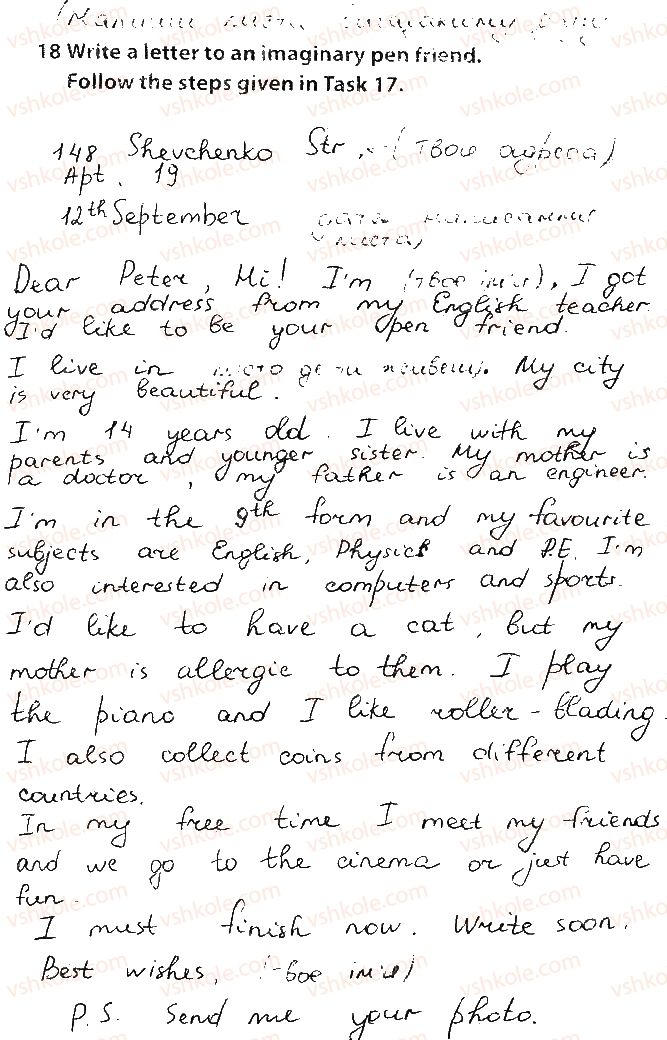 18 Write a letter to an imaginary pen friend.
Follow the steps given in Task 17.
148 Shevchenko Str, (твоя адреса)
Apt. 19
12th September дата написання
листа)
Dear Peter, Hi! I'm (твоє ім'я), I got
your address from my English teacher.
I'd like to be your pen friend.
I live in місто де ти живеш. My city
is very beautiful.
I'm 14 years old. I live with my
parents and younger sister. My mother is
a doctor, my father is an engineer.
I'm in the 9th form and my favourite
subjects are English, Physics and P.E. I'm
also interested in computers and sports.
I'd like to have a cat, but my
mother is allergic to them. I play
the piano and I like roller-blading.
I also collect coins from different
countries.
In my free time I meet my friends
and we go to the cinema or just have
fun.
I must finish now. Write soon.
Best wishes, (твоє ім'я)
P.S. Send me your photo.